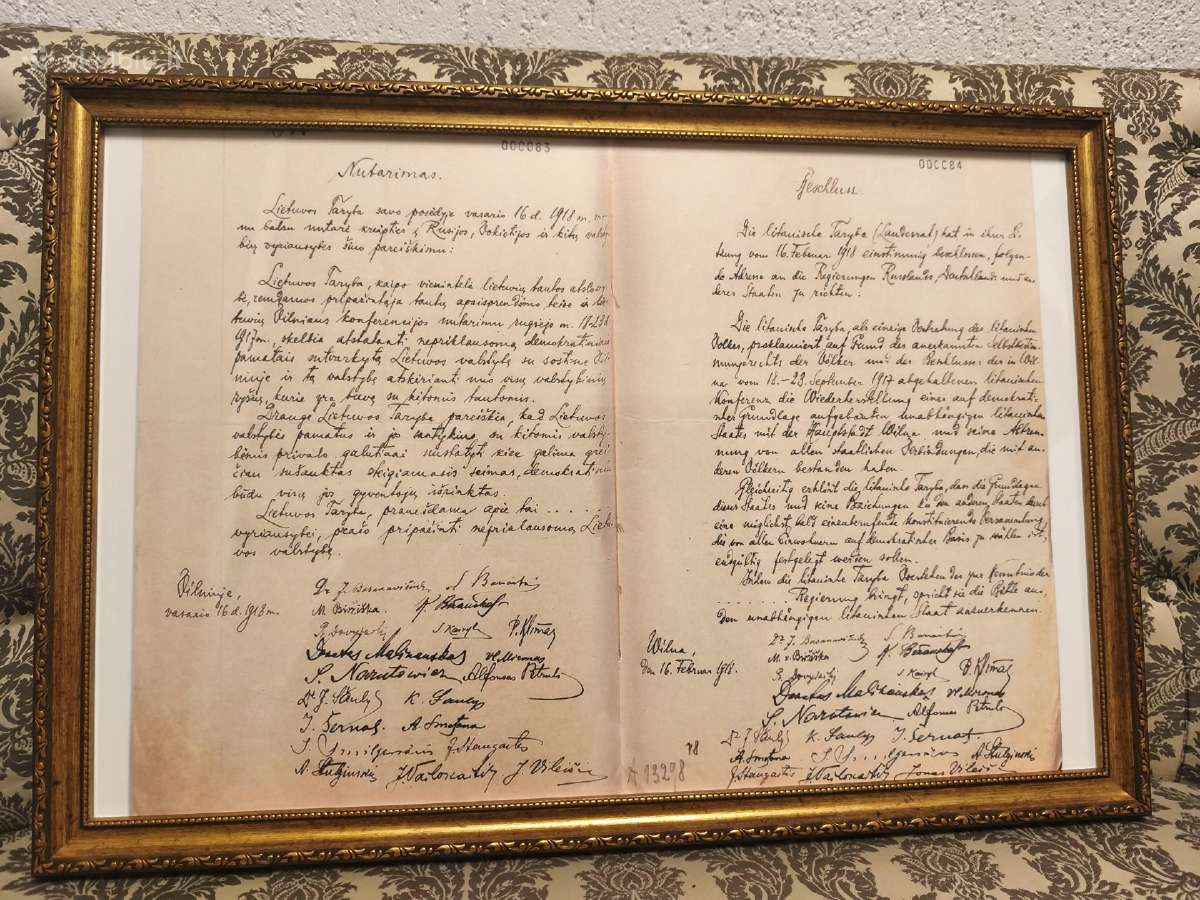 000083
Nutarimas.
Lietuvos Taryba savo posėdyje vasario 16 d. 1918 m. vie
nu balsu nutarė kreipties į Rusijos, Vokietijos ir kitų valsty
bių vyriausybes šiuo pareiškimu:
Lietuvos Taryba, kaipo vienintelė lietuvių tautos atstovy
bė, remdamos pripažintąja tautų apsisprendimo teise ir lie
tuvių Vilniaus konferencijos nutarimu rugsėjo m. 18-23 d.
1917 m., skelbia atstatanti nepriklausomą, demokratiniais
pamatais sutvarkytą Lietuvos valstybę su sostine Vil
niuje ir tą valstybę atskirianti nuo visų valstybinių
ryšių, kurie yra buvę su kitomis tautomis.
Drauge Lietuvos Taryba pareiškia, kad Lietuvos
valstybės pamatus ir jos santykius su kitomis valsty
bėmis privalo galutinai nustatyti kiek galima grei
čiau sušauktas steigiamasis seimas, demokratiniu
būdu visų jos gyventojų išrinktas.
Lietuvos Taryba, pranešdama apie tai . . . . . .
vyriausybei, prašo pripažinti nepriklausomą Lietu
vos valstybę.
Vilniuje,
vasario 16 d. 1918 m.
Dr. J. Basanavičius S. Banaitis
M. Biržiška K. Bizauskas
P. Dovydaitis S. Kairys P. Klimas
Donatas Malinauskas Vl. Mironas
S. Narutowicz Alfonsas Petrulis
Dr. J. Šaulys K. Šaulys
J. Šernas A. Smetona
J. Smilgevičius J. Staugaitis
A. Stulginskis J. Vailokaitis J. Vileišis
000084
Beschluss
Die litauische Taryba (Landesrat) hat in ihrer Si-
tzung vom 16. Februar 1918 einstimmig beschlossen, folgen-
de Adresse an die Regierungen Russlands, Deutschlands und an-
derer Staaten zu richten:
Die litauische Taryba, als einzige Vertretung des litauischen
Volkes, proklamiert auf Grund des anerkannten Selbstbestim-
mungsrechts der Völker und des Beschlusses der in Wil-
na vom 18.-23. September 1917 abgehaltenen litauischen
Konferenz die Wiederherstellung eines auf demokrati-
scher Grundlage aufgebauten unabhängigen litauischen
Staates mit der Hauptstadt Wilna und seine Abtren-
nung von allen staatlichen Verbindungen, die mit an-
deren Völkern bestanden haben.
Gleichzeitig erklärt die litauische Taryba, dass die Grundlagen
dieses Staates und seine Beziehungen zu den anderen Staaten durch
eine möglichst bald einzuberufende konstituierende Versammlung,
die von allen Einwohnern auf demokratischer Basis zu wählen ist,
endgültig festgelegt werden sollen.
Indem die litauische Taryba Vorstehendes zur Kenntnis der
. . . . . . . . Regierung bringt, spricht sie die Bitte aus,
den unabhängigen litauischen Staat anzuerkennen.
Wilna,
den 16. Februar 1918.
Dr. J. Basanavičius S. Banaitis
M. v. Biržiška K. Bizauskas
P. Dovydaitis S. Kairys P. Klimas
Donatas Malinauskas Vl. Mironas
S. Narutowicz Alfonsas Petrulis
Dr. J. Šaulys K. Šaulys J. Šernas
A. Smetona J. Smilgevičius A. Stulginskis
J. Staugaitis J. Vailokaitis Jonas Vileišis
A 13298